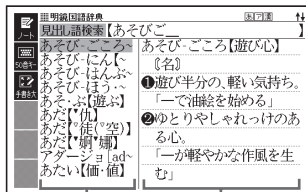 明鏡国語辞典 あア漢
ノート
見出し語検索【あそびご__ 】
50音キー
手書き大
あそび‐ごころ~
あそび‐にん【~
あそび‐はんぶ~
あそび‐ほう・~
あそ・ぶ【遊ぶ】
あだ【*仇】
あだ【°徒(°空)】
あだ【*婀*娜】
アダージョ【ad~
あたい【価・値】
あそび‐ごころ【遊び心】
〘名〙
❶遊び半分の、軽い気持ち。
「―で油絵を始める」
❷ゆとりやしゃれっけのあ
る心。
「―が軽やかな作風を生
む」